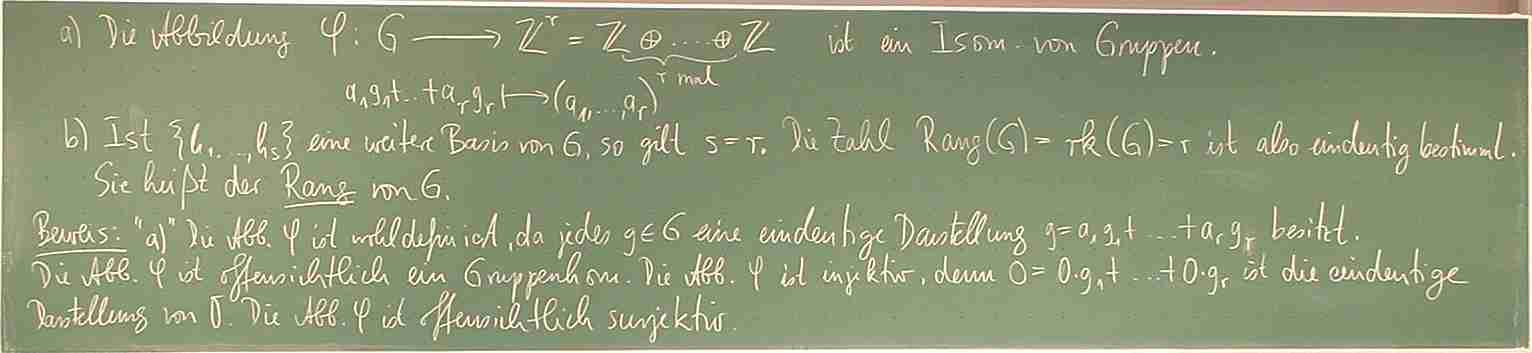 a) Die Abbildung φ: G ⟶ ℤ^r = ℤ ⊕ .... ⊕ ℤ ist ein Isom. von Gruppen.
r mal
a₁g₁+...+a_r g_r ⟼ (a₁,...,a_r)
b) Ist {h₁,...,h_s} eine weitere Basis von G, so gilt s=r. Die Zahl Rang(G) = rk(G) = r ist also eindeutig bestimmt.
Sie heißt der Rang von G.
Beweis: "a)" Die Abb. φ ist wohldefiniert, da jedes g∈G eine eindeutige Darstellung g=a₁g₁+ ... +a_r g_r besitzt.
Die Abb. φ ist offensichtlich ein Gruppenhom. Die Abb. φ ist injektiv, denn 0 = 0·g₁+ ... +0·g_r ist die eindeutige
Darstellung von 0. Die Abb. φ ist offensichtlich surjektiv.